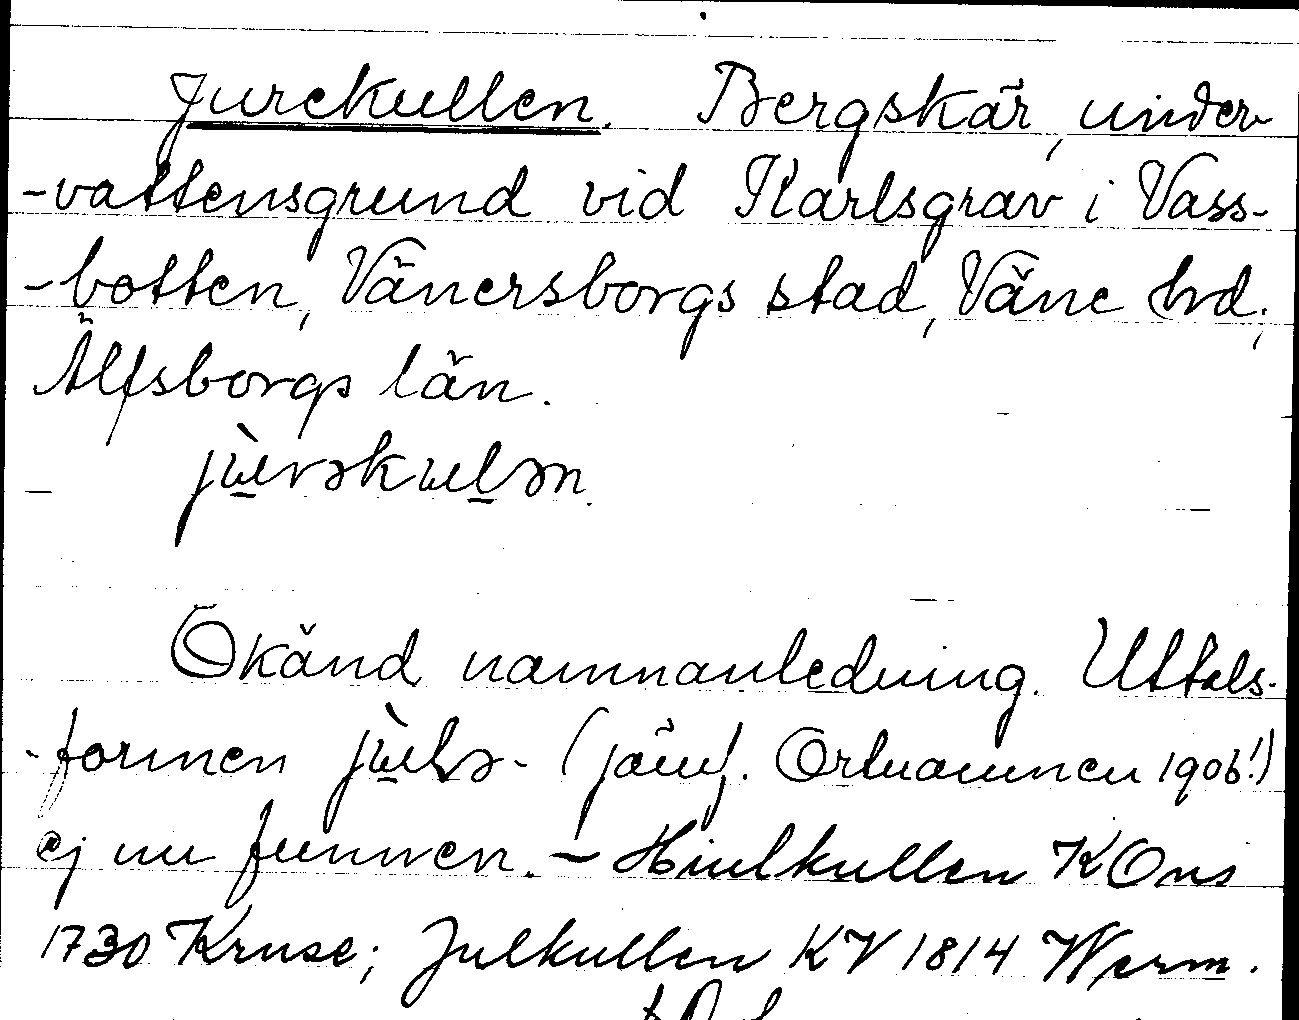 Jurekullen. Bergskär, under-
-vattensgrund vid Karlsgrav i Vass-
-botten, Vänersborgs stad, Väne hd,
Älfsborgs län.
jùrəkulən.
Okänd namnanledning. Uttals-
-formen jùlə- (jämf. Ortnamnen 1906!)
ej nu funnen. – Hiulkullen KOns
1730 Kruse; Julkullen KV 1814 Werm.